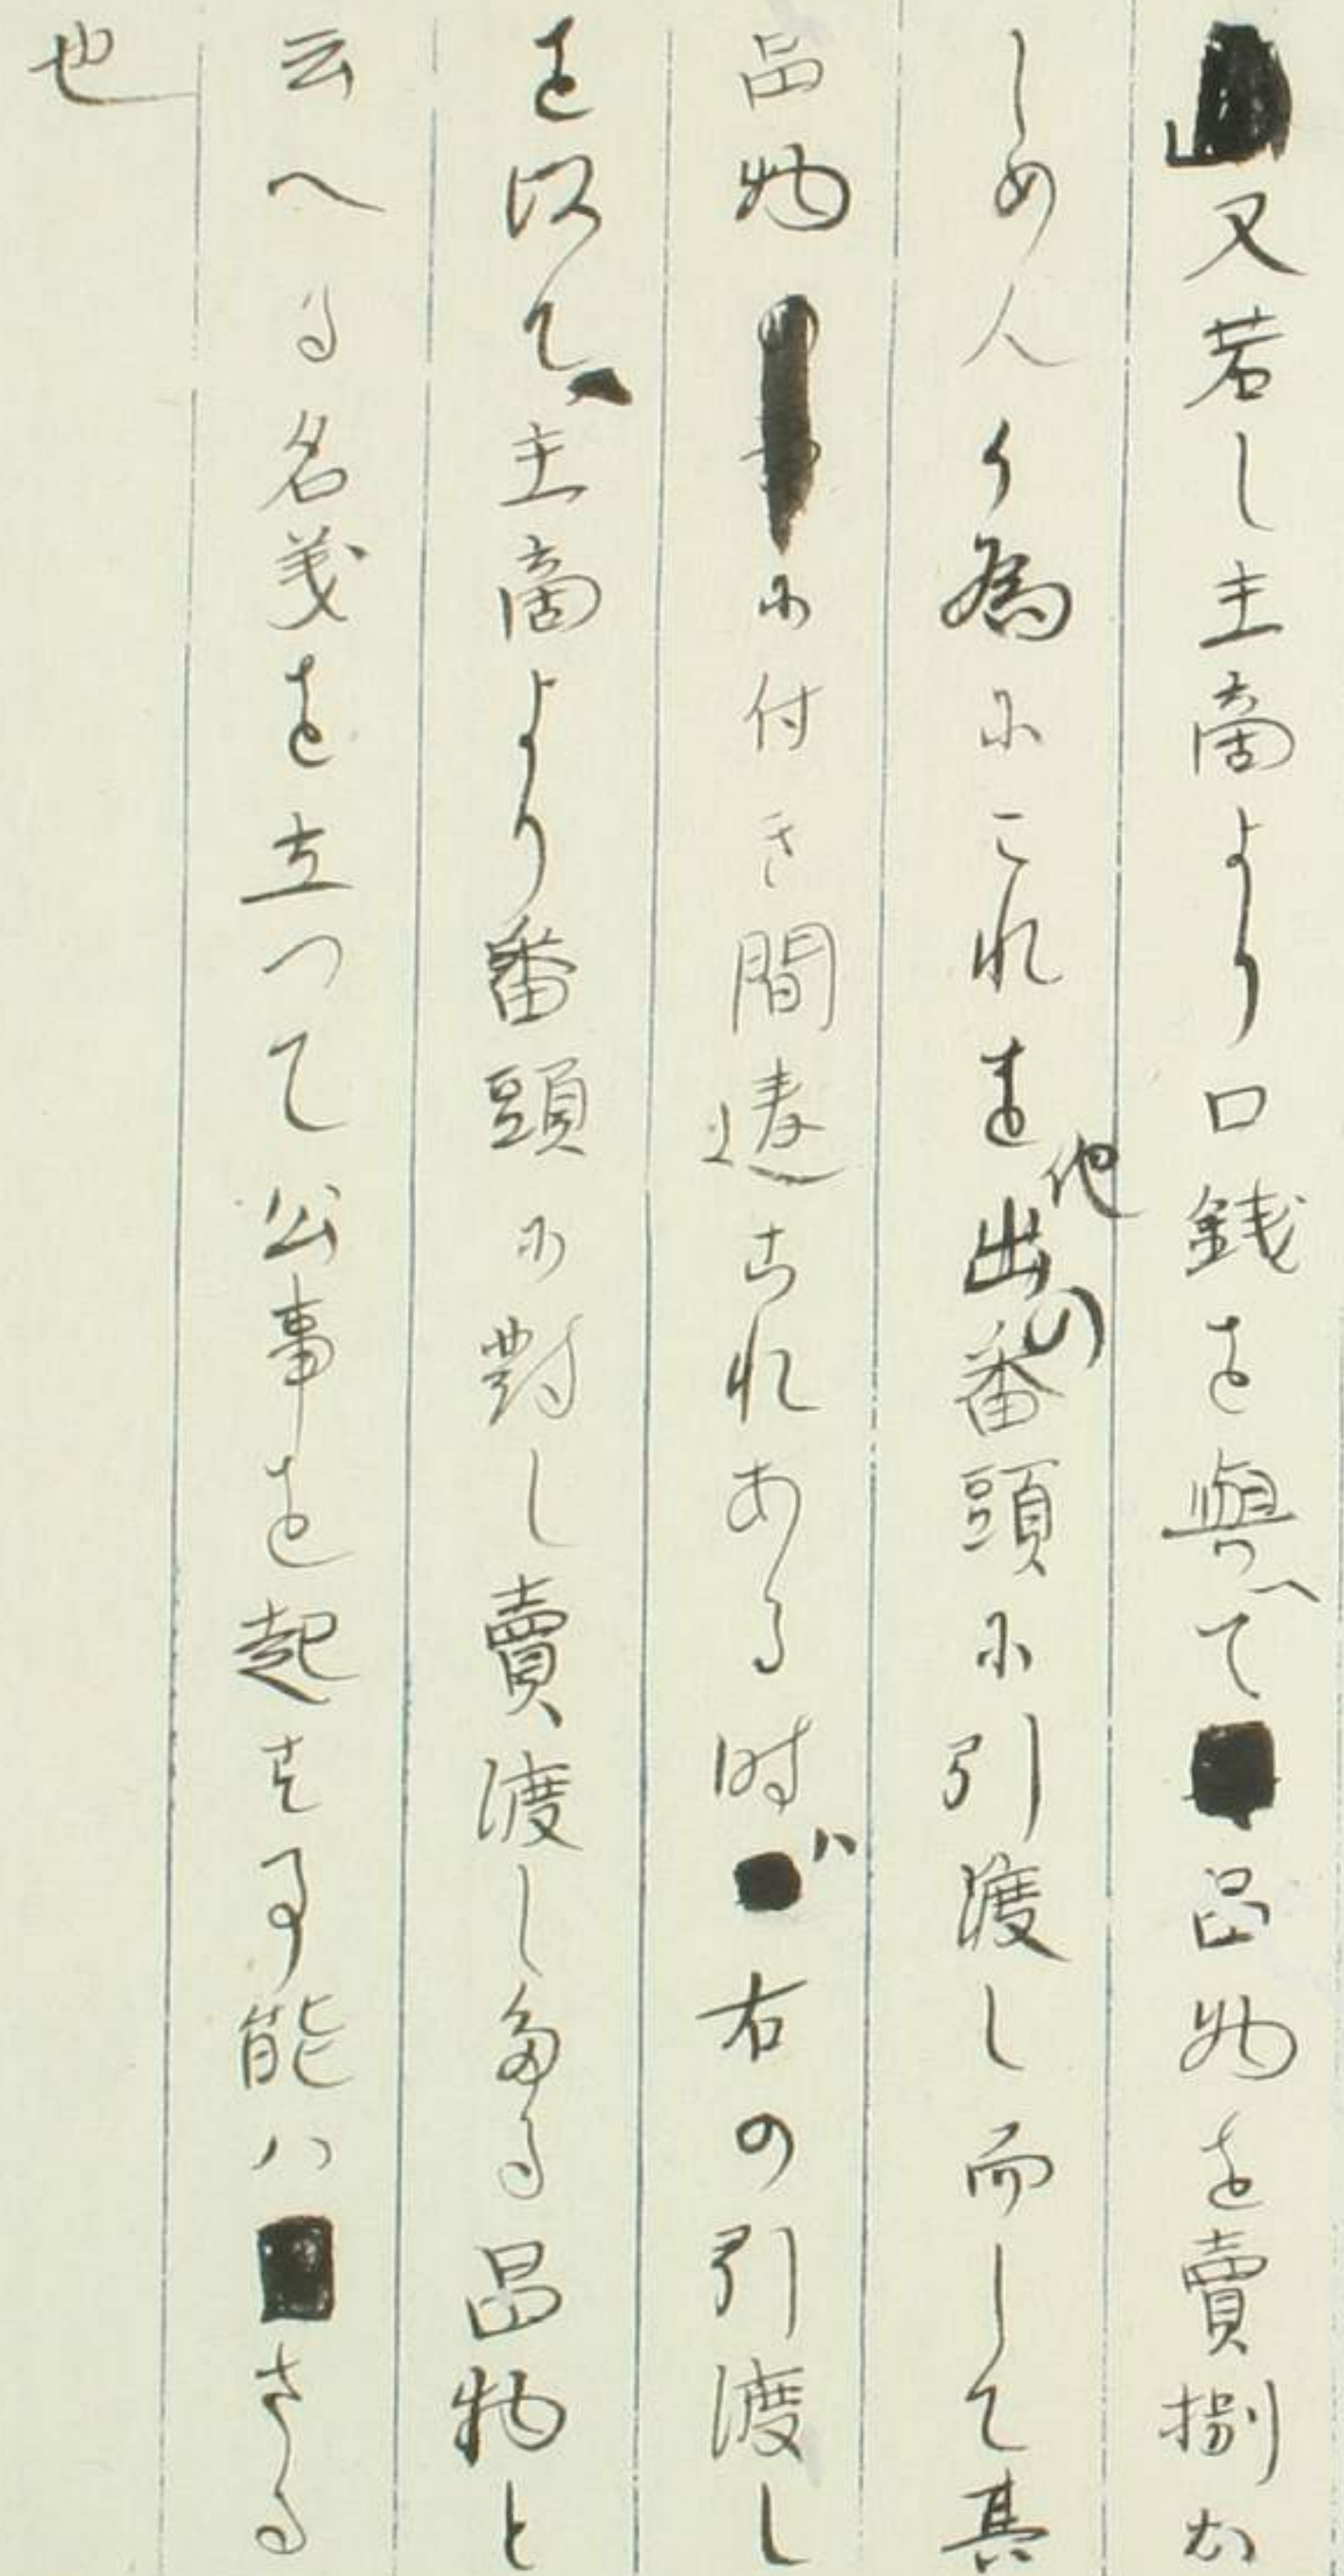 又若し主商より口銭を與へて品物を賣捌か
しめんか為にこれを他の出番頭に引渡し而して其
品物に付き間違これある時ハ右の引渡し
を以て主商より番頭に對し賣渡したる品物と
云へる名義を立つて公事を起す事能ハさる
也